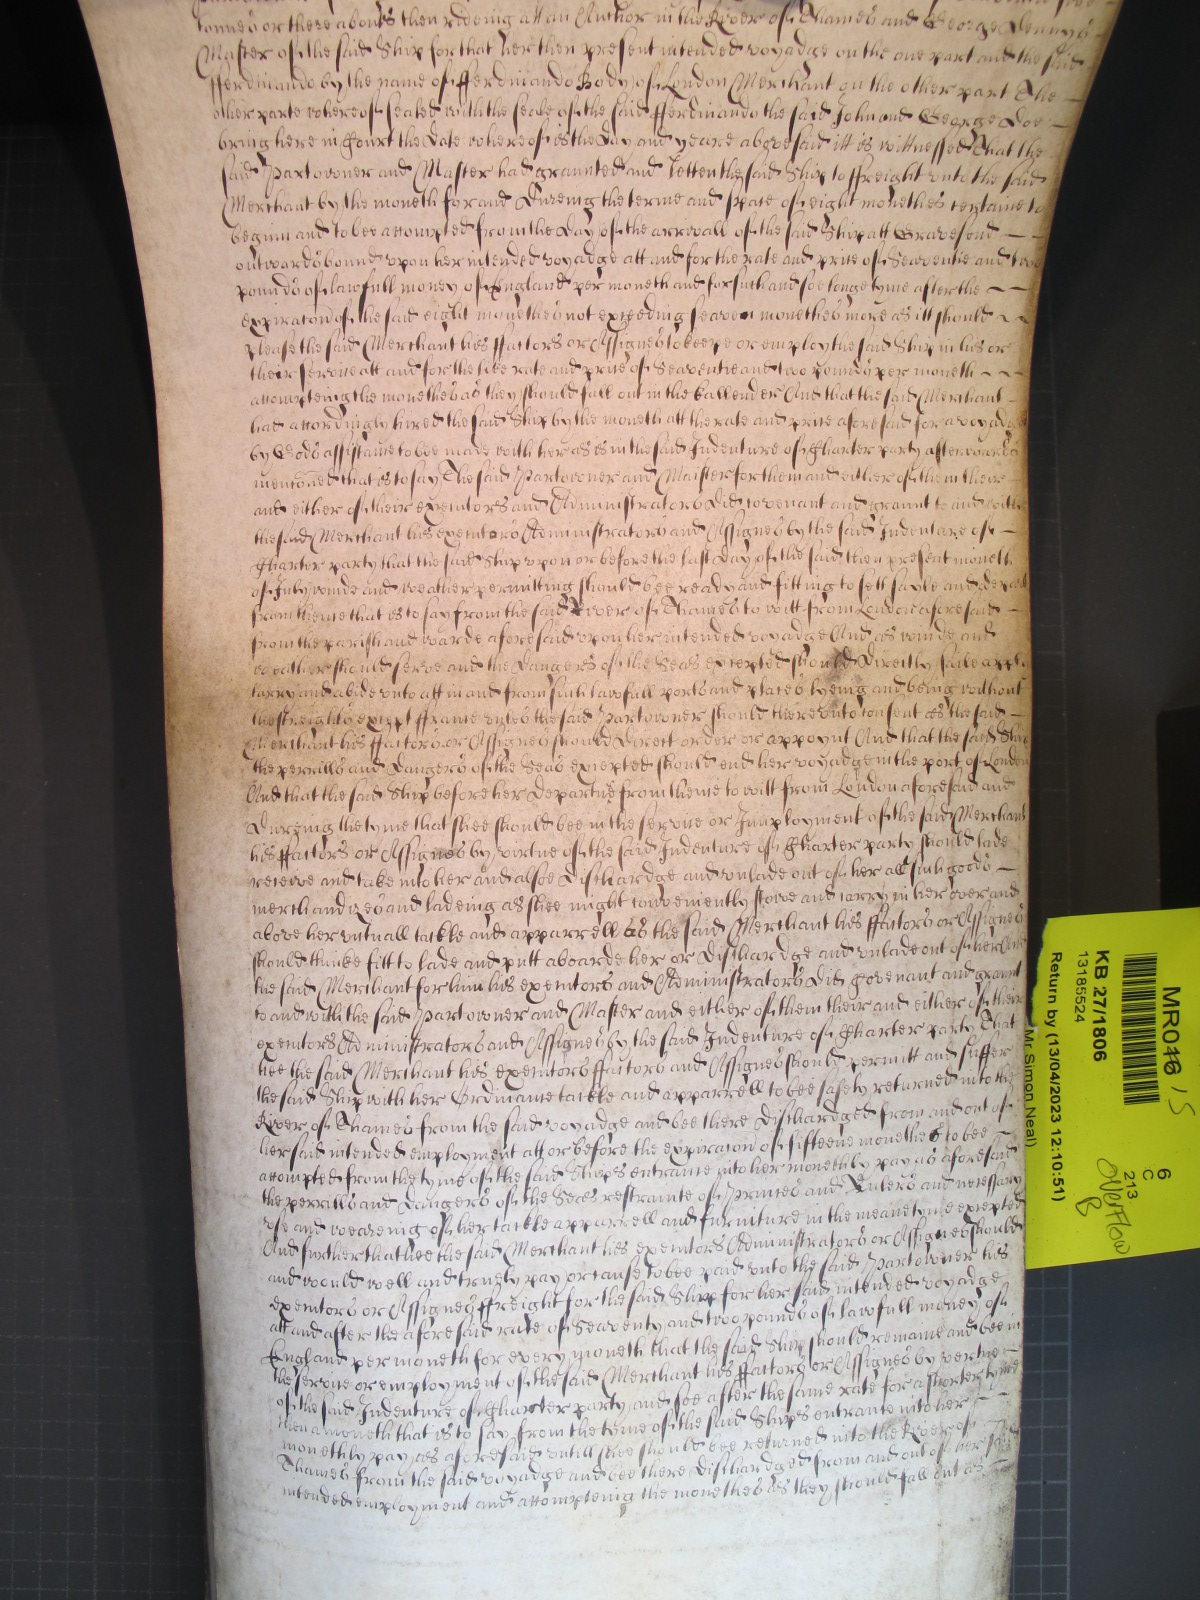 tonnes or there abouts then rideing att an Anchor in the River of Thames and George Dennys
Master of the said Shipp for that her then present intended voyadge on the one part and the said
fferdinando by the name of fferdinando Body of London Merchant on the other part The
other parte whereof sealed with the seale of the said fferdinando the said John and George Doe
bring here in Court the date whereof is the day and yeare abovesaid itt is wittnessed That the
said Partowner and Master had graunted and letten the said Shipp to ffreight unto the said
Merchant by the moneth for and dureing the terme and space of eight monethes certaine to
beginn and to bee accompted from the day of the arrivall of the said Shipp att Gravesend
outwards bound upon her intended voyadge att and for the rate and price of Seaventie and two
pounds of lawfull money of England per moneth and for such and soe longe tyme after the
expiracon of the said eight monethes not exceeding seaven monethes more as itt should
please the said Merchant his ffactors or Assignes to keepe or employ the said Shipp in his or
their service att and for the like rate and price of Seaventie and two pounds per moneth
accompteing the monethes as they should fall out in the Kallender And that the said Merchant
had accordingly hired the said Shipp by the moneth att the rate and price aforesaid for a voyadge
by Gods assistance to bee made with her as is in the said Indenture of Charter party afterwards
menconed that is to say The said Partowner and Maister for them and either of them their
and either of their executors and Administrators did covenant and graunt to and with
the said Merchant his executors Administrators and Assignes by the said Indenture of
Charter party that the said Shipp upon or before the last day of the said then present moneth
of July winde and weather permitting should bee ready and fitting to sett sayle and depart
from thence that is to say from the said River of Thames to witt from London aforesaid
from the parish and warde aforesaid upon her intended voyadge And as winde and
weather should serve and the dangers of the Seas excepted should directly saile apply
tarry and abide unto att in and from such lawfull ports and places lyeing and being without
the streights except ffrance unles the said Partowner should thereunto consent as the said
Merchant his ffactors or Assignes should direct order or appoynt And that the said Shipp
the perrills and dangers of the Seas excepted should end her voyadge in the port of London
And that the said Shipp before her departure from thence to witt from London aforesaid and
dureing the tyme that shee should bee in the service or Imployment of the said Merchant
his ffactors or Assignes by virtue of the said Indenture of Charter party should lade
receive and take into her and alsoe dischardge and unlade out of her all such goods
merchandizes and ladeing as shee might conveniently stowe and carry in her over and
above her victuall tackle and apparrell As the said Merchant his ffactors or Assignes
should thinke fitt to lade and putt aboarde her or dischardge and unlade out of her And
the said Merchant for him his executors and Administrators did Covenant and graunt
to and with the said Partowner and Master and either of them their and either of their
executors Administrators and Assignes by the said Indenture of Charter party That
hee the said Merchant his executors ffactors and Assignes should permitt and suffer
the said Shipp with her Ordinance tackle and apparrell to bee safely returned into the
River of Thames from the said voyadge and bee there dischardged from and out of
her said intended employment att or before the expiracon of fifteene monethes to bee
accompted from the tyme of the said Shipps entrance into her monethly pay as aforesaid
the perrills and dangers of the Seas restrainte of Princes and Rulers and necessary
use and weareing of her tackle apparrell and furniture in the meane tyme excepted
And further that hee the said Merchant his executors Administrators or Assignes should
and would well and truely pay or cause to bee paid unto the said Partowner his
executors or Assignes ffreight for the said Shipp for her said intended voyadge
att and after the aforesaid rate of Seaventy and twoo pounds of lawfull money of
England per moneth for every moneth that the said Shipp should remaine and bee in
the service or employment of the said Merchant his ffactors or Assignes by vertue
of the said Indenture of Charter party and soe after the same rate for a shorter tyme
then a moneth that is to say from the tyme of the said Shipps entrance into her
monethly pay as aforesaid untill shee should bee returned into the River of
Thames from the said voyadge and bee there dischardged from and out of her said
intended employment and accompteing the monethes as they should fall out as
MR046 / 15
KB 27/1806
13185524
Return by (13/04/2023 12:10:51)
Mr Simon Neal)
6
C
213
Overflow
B